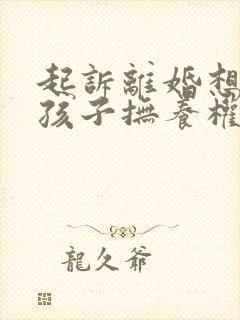 起訴離婚想
孩子撫養權
龍久爺